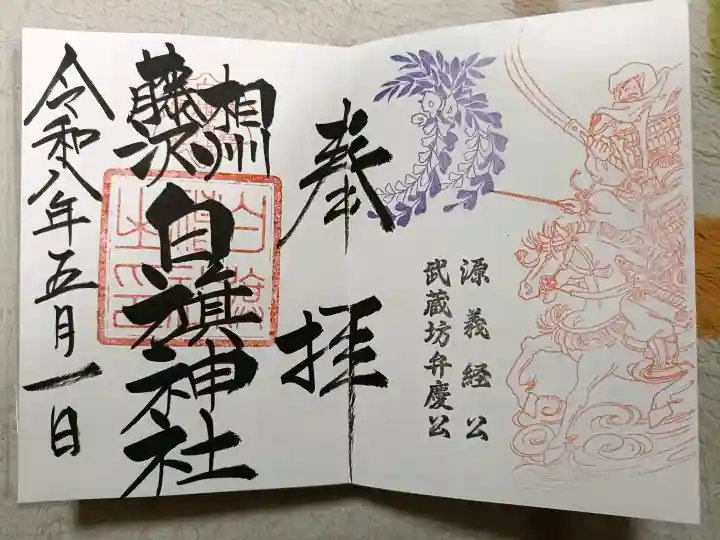 源義経公
武蔵坊弁慶公
奉拝
相州
藤沢
白旗神社
令和八年五月一日